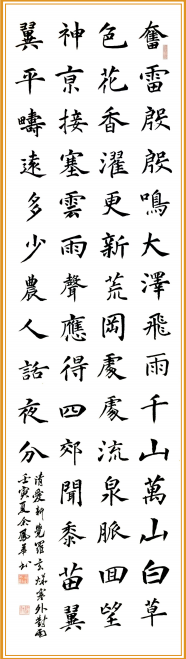 奮雷殷殷鳴大澤飛雨千山萬山白草
色花香濯更新荒岡處處流泉脈囬望
神亰接塞雲雨聲應得四郊聞黍苗翼
翼平疇遠多少農人話夜分
清愛新覺羅玄燁塞外對雨
壬寅夏